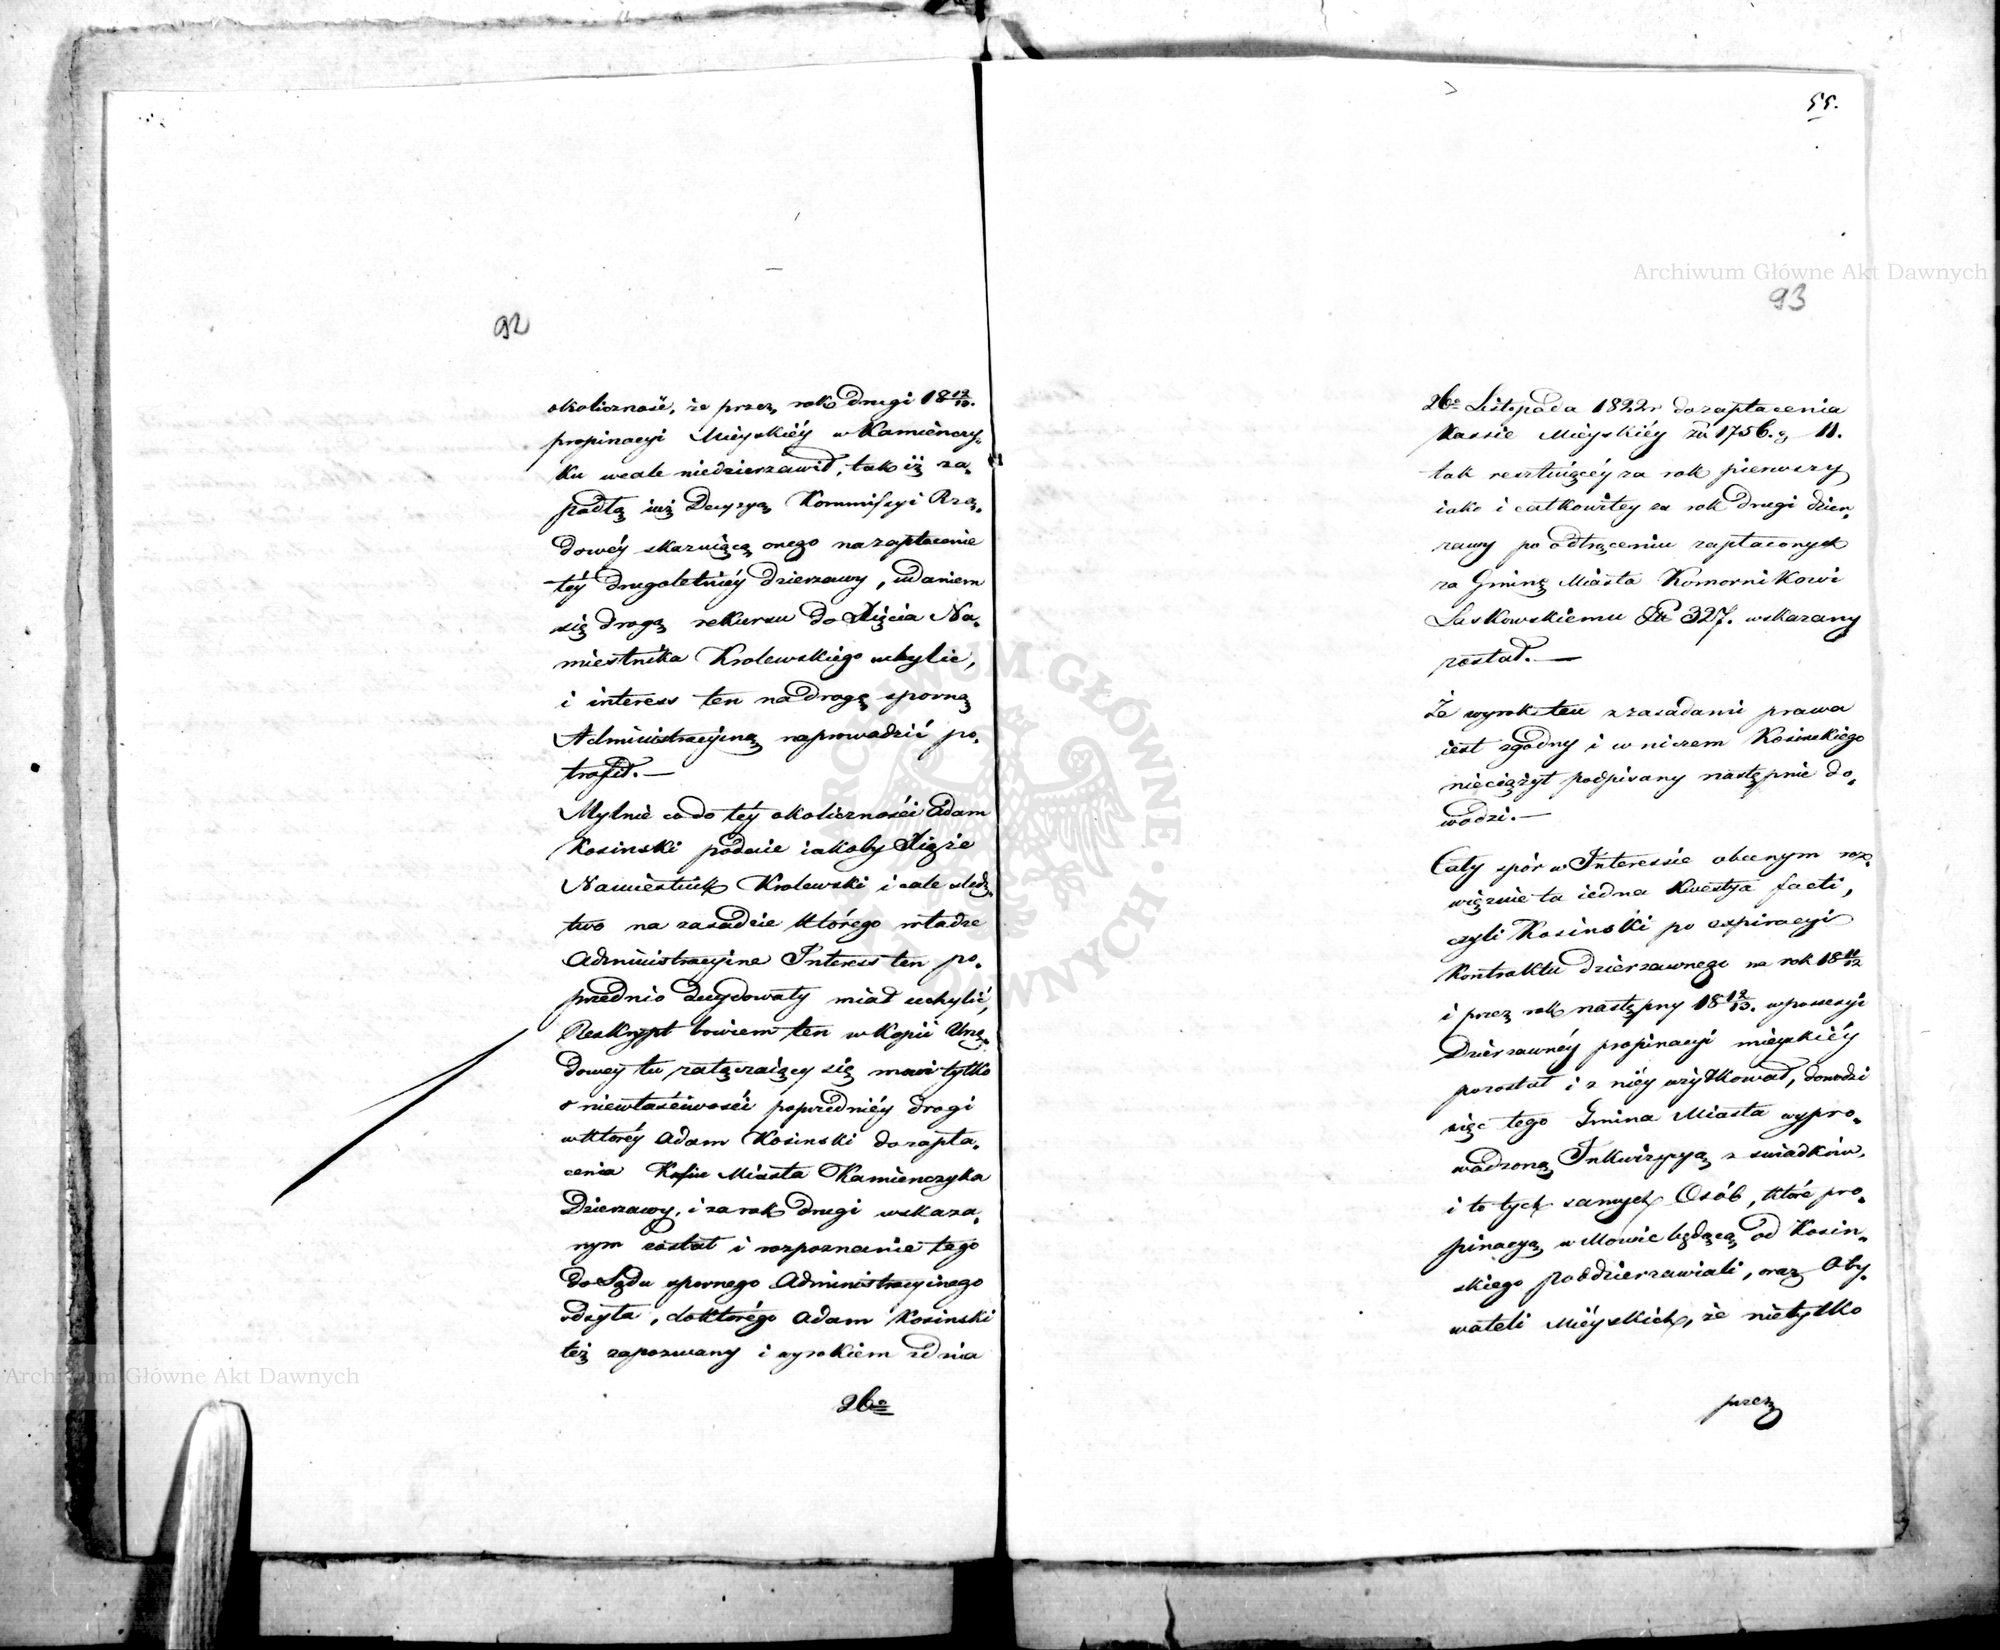 92
okoliczność, że przez rok drugi 18 12/13.
propinacyi Mieyskiéy w Kamieńczy,
ku wcale niedzierzawił, tak iż za,
padłą iuż Decyzyą Kommissyi Rzą,
dowéy skazuiącą onego na zapłacenie
téy drugoletniéy dzierzawy, udaniem
się drogą rekursu do Xięcia Na,
miestnika Krolewskiego uchylić,
i interess ten na drogę sporną
Administracyiną naprowadzić po,
trafił.—
Mylnie co do téy okoliczności Adam
Kosinski podaie iakoby Xiąże
Namiestnik Krolewski i całe śledz,
two na zasadzie którego władze
Administracyine Interess ten po,
przednio decydowały miał uchylić,
Reskrypt bowiem ten w Kopii Urzę,
dowey tu załączaiący się mówi tylko
o niewłaściwości poprzedniéy drogi
w któréy Adam Kosinski do zapła,
cenia Kassie Miasta Kamienczyka
Dzierzawy, i za rok drugi wskaza,
nym został i rozpoznanie tego
do Sądu spornego Administracyinego
odsyła, do którego Adam Kosinski
też zapozwany i wyrokiem z dnia
26o
55.
93
26o Listopada 1822r do zapłacenia
Kassie Mieyskiéy Zł 1756. g 11.
tak resztuiącéy za rok pierwszy
iako i całkowitey za rok drugi dzier,
zawy po odtrąceniu zapłaconych
za Gminę Miasta Komornikowi
Laskowskiemu Zł 327. wskazany
został.—
Że wyrok ten z zasadami prawa
iest zgodny i w niczem Kosinskiego
nieciążył podpisany następnie do,
wodzi.—
Cały spór w Interessie obecnym roz,
wiąznie ta iedna Kwestya facti,
czyli Kosinski po expiracyi
Kontraktu dzierzawnego na rok 18 11/12
i przez rok następny 18 12/13. w possessyi
Dzierzawnéy propinacyi mieyskiéy
pozostał i z niéy użytkował, dowodzi
więc tego Gmina Miasta wypro,
wadzoną Inkwizycyą z swiadków,
i to tych samych Osób, które pro,
pinacyą w Mowie będącą od Kosin,
skiego poddzierzawiali, oraz Oby,
wateli Miéyskich, że nietylko
przez
Archiwum Główne Akt Dawnych
Archiwum Główne Akt Dawnych
ARCHIWUM GŁÓWNE AKT DAWNYCH